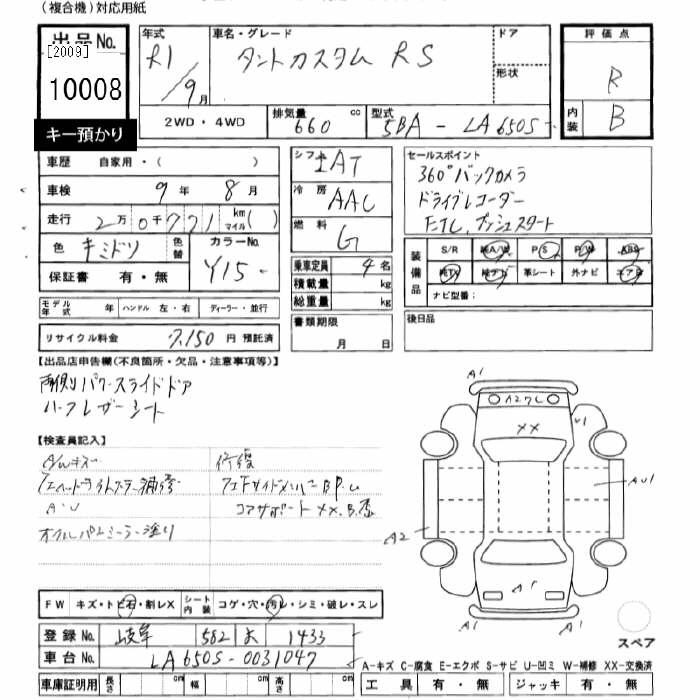 (複合機)対応用紙
出品No.
[2009]
10008
キー預かり
年式 R1/9月
車名・グレード タントカスタム RS
ドア
形状
評価点 R
内装 B
2WD・4WD
排気量 660 cc
型式 5BA-LA650S
車歴 自家用・( )
車検 9年 8月
走行 2万0千771 km マイル( )
色 キミドリ 色替
カラーNo. Y15
保証書 有・無
モデル年式 年 ハンドル 左・右 ディーラー・並行
リサイクル料金 7,150円 預託済
シフト AT
冷房 AAC
燃料 G
乗車定員 4名
積載量 kg
総重量 kg
書類期限
月 日
セールスポイント
360°バックカメラ
ドライブレコーダー
ETC、プッシュスタート
装備品
S/R 純A/W P/S P/W ABS
純TV 純ナビ 革シート 外ナビ エアB
ナビ型番:
後日品
【出品店申告欄(不良箇所・欠品・注意事項等)】
両側パワースライドドア
ハーフレザーシート
【検査員記入】
A/Wキズ
A・U
修復
コアサポートXX、B
A1
A1
A2
AU1
XX
A1
A1
FW キズ・トビ石・割レX
シート内装 コゲ・穴・汚レ・シミ・破レ・スレ
登録No. 岐阜 582 あ 1433
車台No. LA650S-0031047
車庫証明用 長さ cm 幅 cm 高さ cm
スペア
A-キズ C-腐食 E-エクボ S-サビ U-凹ミ W-補修 XX-交換済
工具 有・無 ジャッキ 有・無